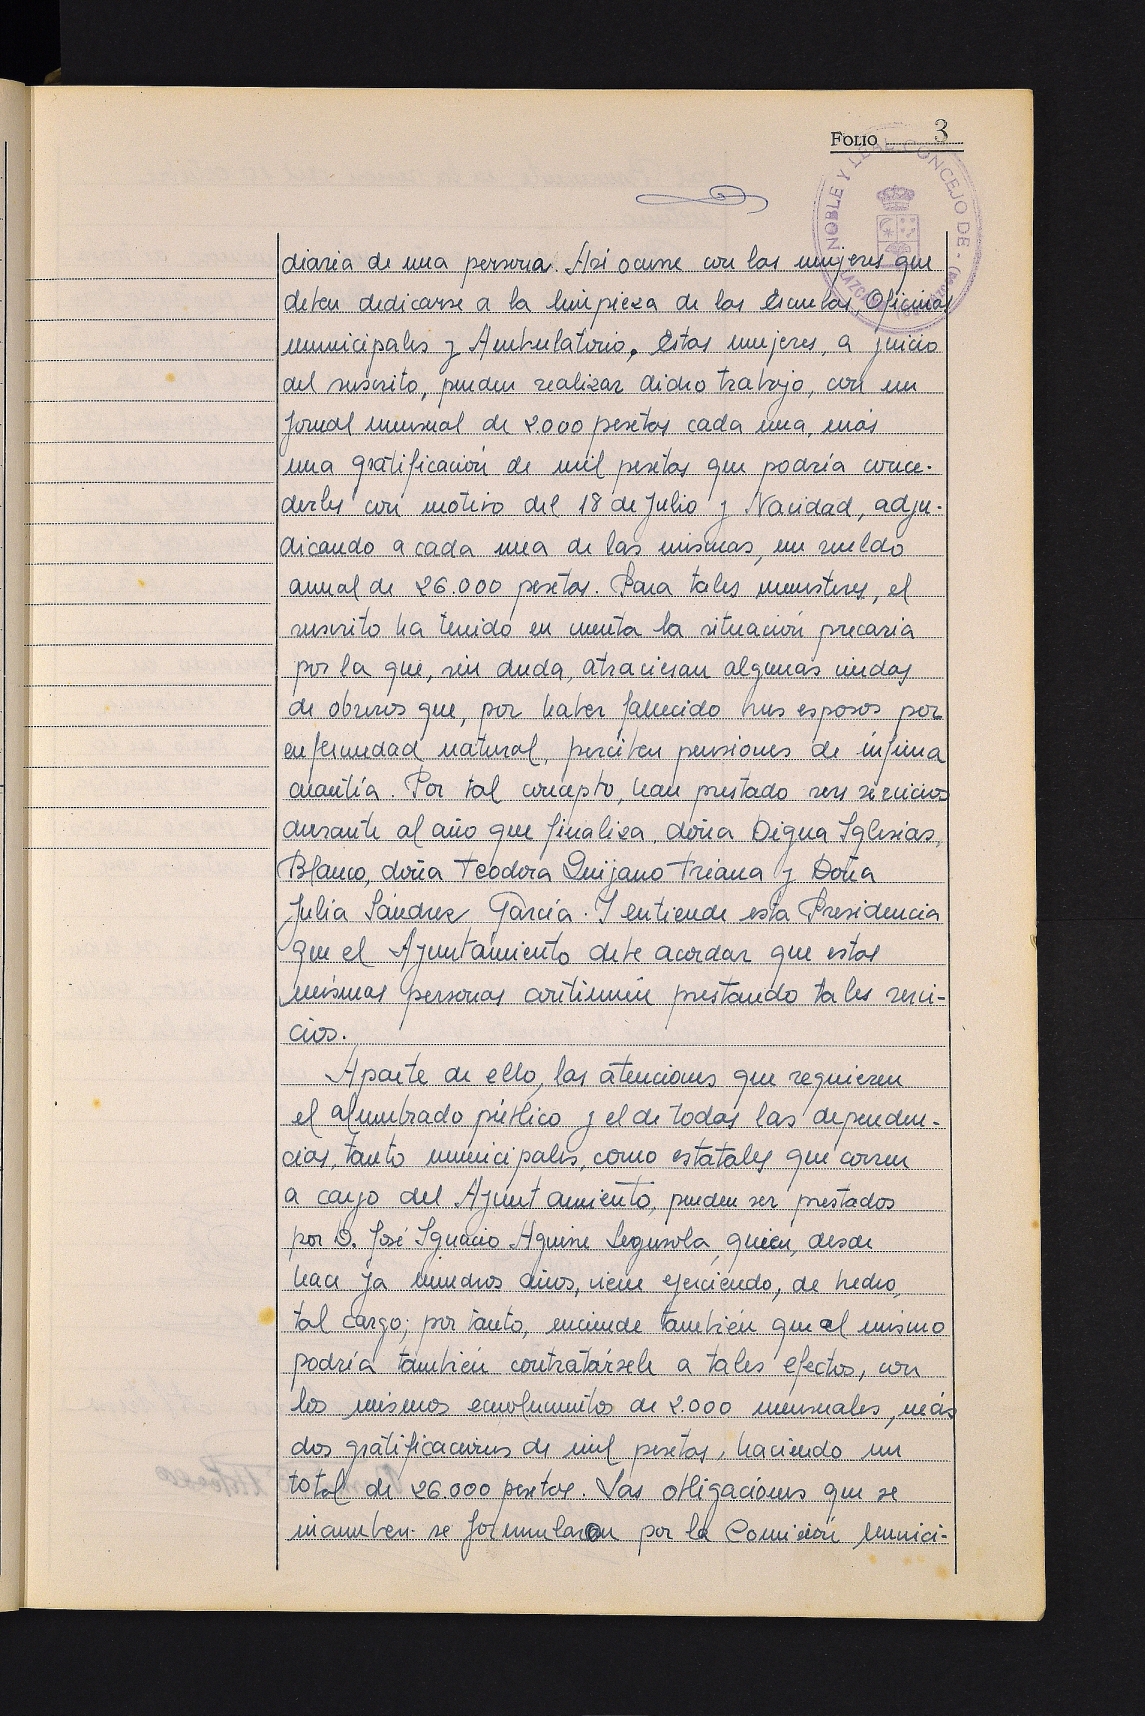 FOLIO 3
NOBLE Y LEAL CONCEJO DE -
LAZCANO (GUIPUZCOA)
diaria de una persona. Así ocurre con las mujeres que
deben dedicarse a la limpieza de las Escuelas, Oficinas
municipales y Ambulatorio. Estas mujeres, a juicio
del suscrito, pueden realizar dicho trabajo, con un
jornal mensual de 2.000 pesetas cada una, más
una gratificación de mil pesetas que podría conce-
derles con motivo del 18 de Julio y Navidad, adju-
dicando a cada una de las mismas, un sueldo
anual de 26.000 pesetas. Para tales menesteres, el
suscrito ha tenido en cuenta la situación precaria
por la que, sin duda, atraviesan algunas viudas
de obreros que, por haber fallecido sus esposos por
enfermedad natural, perciben pensiones de ínfima
cuantía. Por tal concepto, han prestado sus servicios
durante al año que finaliza, doña Digna Iglesias,
Blanco, doña Teodora Quijano Triana y Doña
Julia Sánchez García. Y entiende esta Presidencia
que el Ayuntamiento debe acordar que estas
mismas personas continuén prestando tales servi-
cios.
Aparte de ello, las atenciones que requieren
el alumbrado público y el de todas las dependen-
cias, tanto municipales, como estatales que corren
a cargo del Ayuntamiento, pueden ser prestados
por D. José Ignacio Aguirre Segurola, quien, desde
hace ya muchos años, viene ejerciendo, de hecho,
tal cargo; por tanto, enciende también que al mismo
podría también contratársele a tales efectos, con
los mismos emolumentos de 2.000 mensuales, más
dos gratificaciones de mil pesetas, haciendo un
total de 26.000 pesetas. Las obligaciones que se
incumben se formularon por la Comisión Munici-